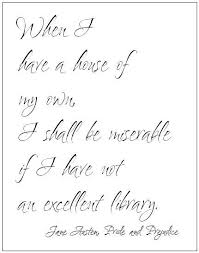 When I
have a house of
my own,
I shall be miserable
if I have not
an excellent library.
Jane Austen, Pride and Prejudice